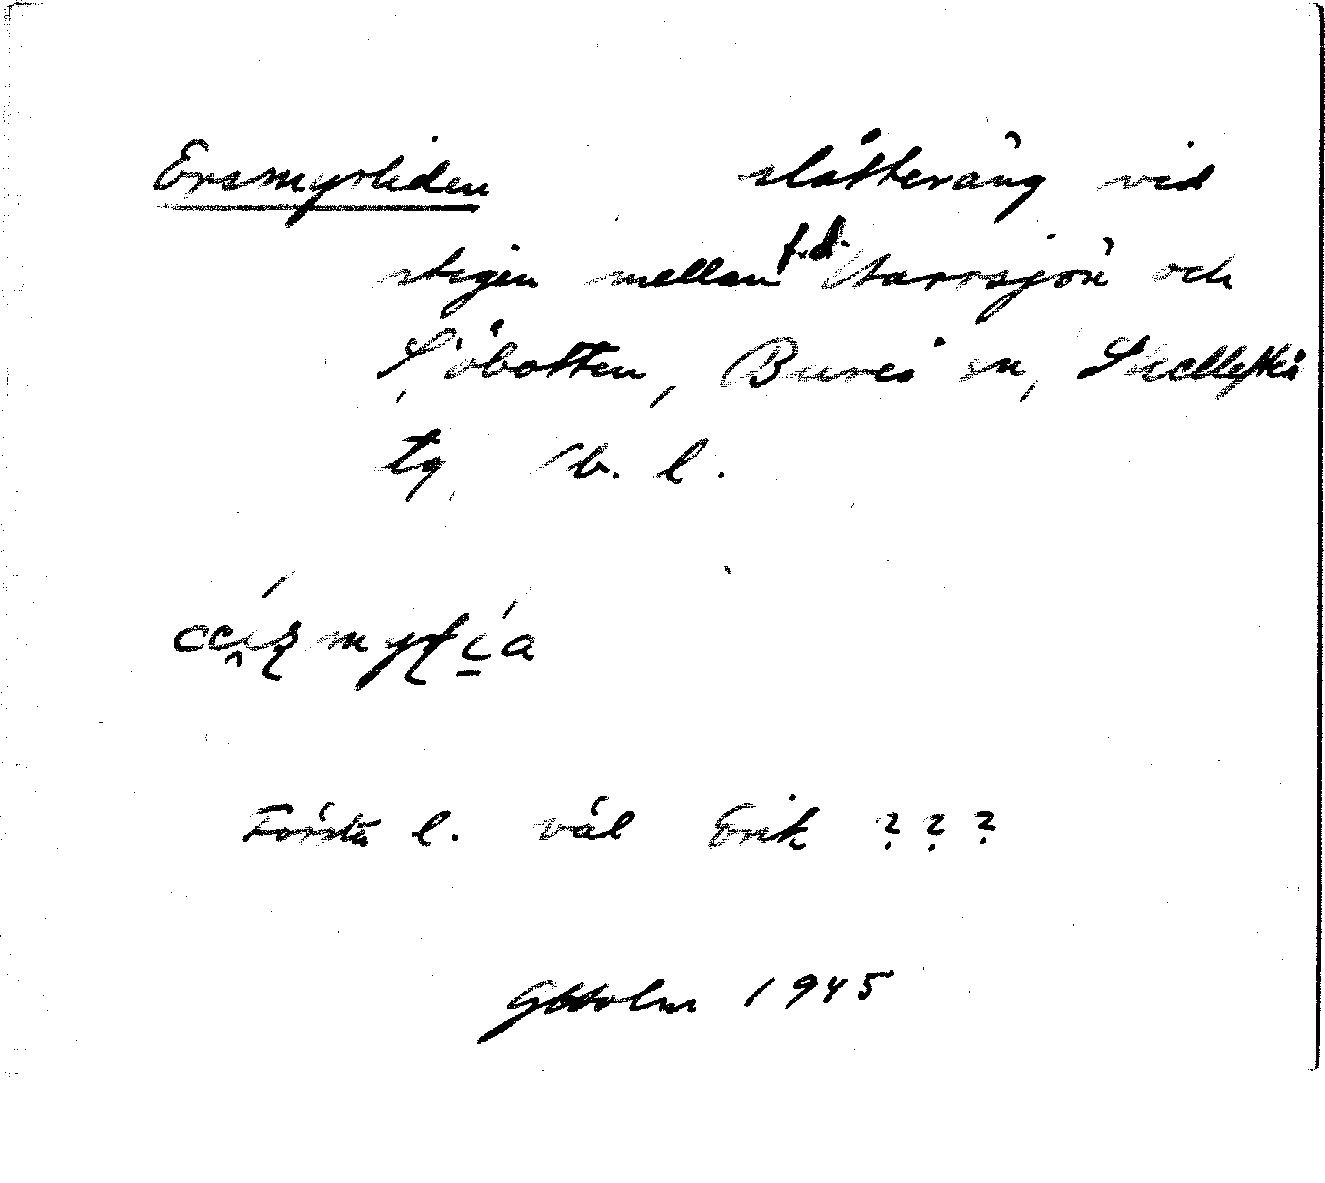 Ersmyrliden slåtteräng vid
stigen mellan f.d. Starrsjön och
Sjöbotten, Bureå sn, Skellefteå
tg Vb. l.
Första l. väl Erik ???
GHolm 1945